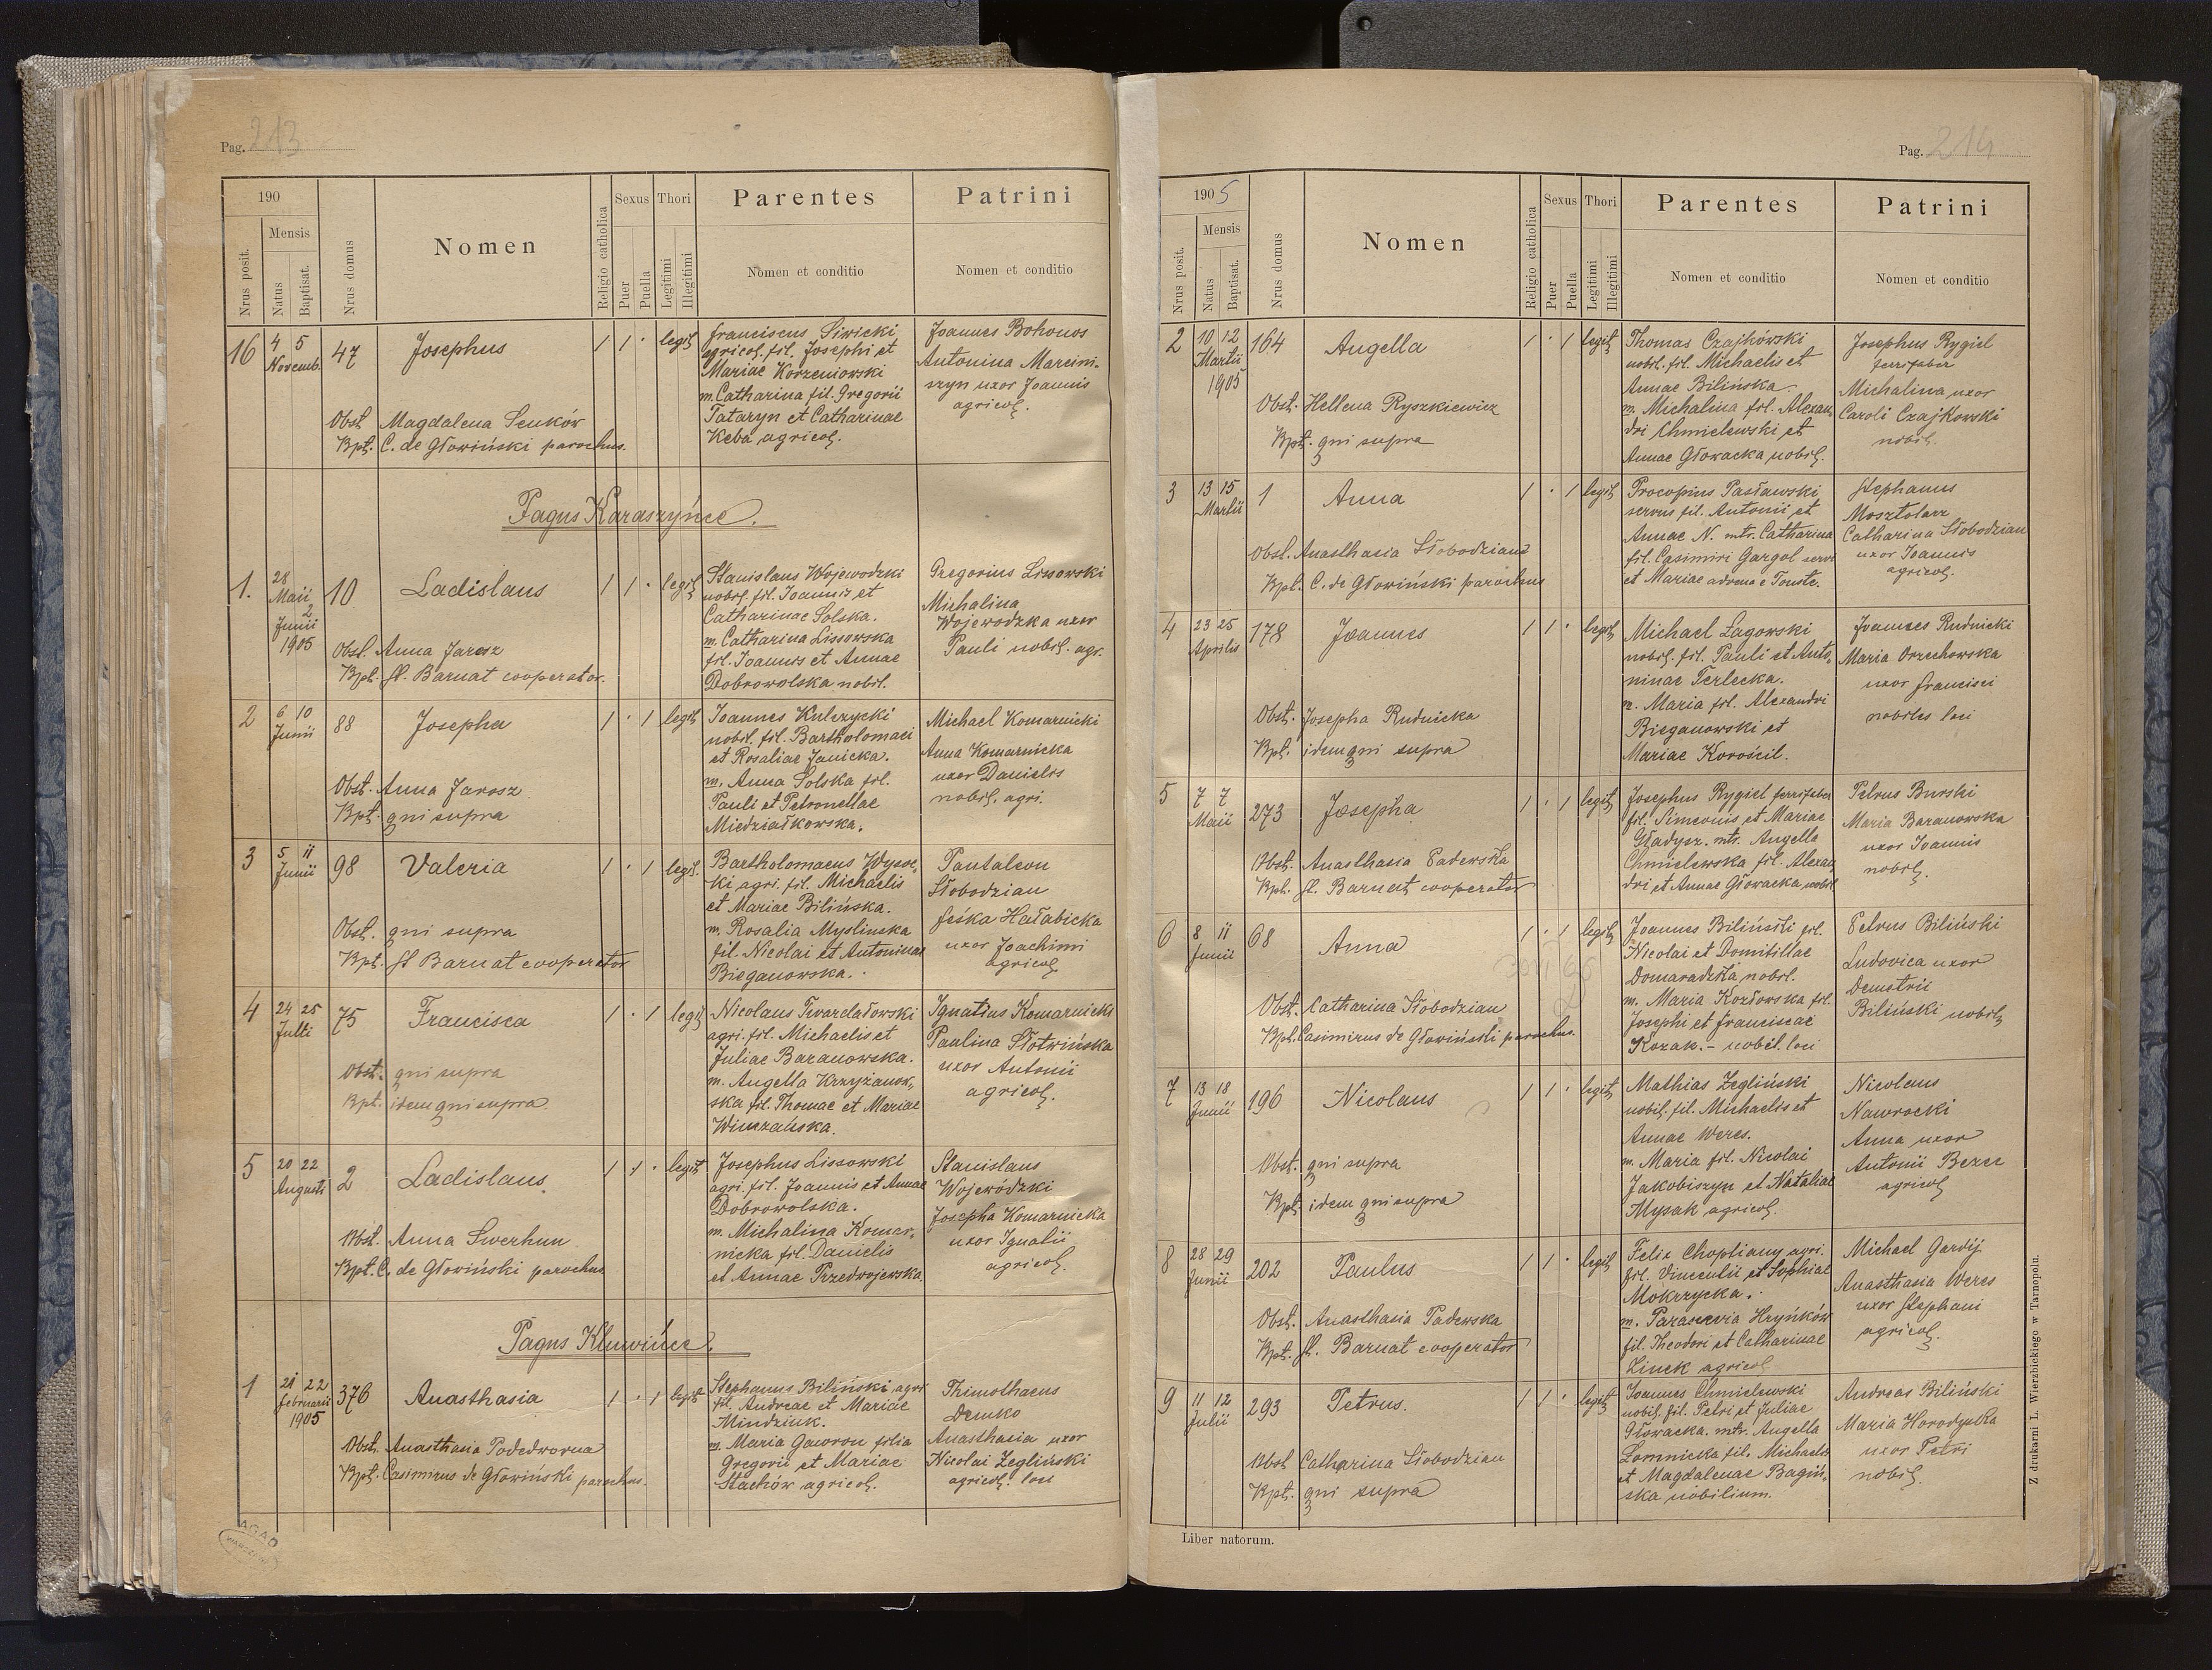 Pag. 213
190
Nrus posit.
Mensis
Natus
Baptisat.
Nrus domus
Nomen
Religio catholica
Sexus
Puer
Puella
Thori
Legitimi
Illegitimi
Parentes
Nomen et conditio
Patrini
Nomen et conditio
16
4 5
Novemb.
47
Josephus
1 1 · legit
Franciscus Siwicki
agricol. fil. Josephi et
Mariae Korzeniowski
m. Catharina fil. Gregorii
Tataryn et Catharinae
Keba agricol.
Joannes Bohonos
Antonina Marcini-
szyn uxor Joannis
agricol.
Obst. Magdalena Senków
Bpt. C. de Głowiński parochus.
Pagus Karaszyńce.
1.
28
Maii
2
Junii
1905
10
Ladislaus
1 1 · legit
Stanislaus Wojewodzki
nobil. fil. Joannis et
Catharinae Solska.
m. Catharina Lissowska
fil. Joannis et Annae
Dobrowolska nobil.
Gregorius Lissowski
Michalina
Wojewodzka uxor
Pauli nobil. agr.
Obst. Anna Jarosz
Bpt. St. Barnat cooperator.
2
6 10
Junii
88
Josepha
1 · 1 legit
Joannes Kulczycki
nobil. fil. Bartholomaei
et Rosaliae Janicka.
m. Anna Solska fil.
Pauli et Petronellae
Miedziałkowska.
Michael Komarnicki
Anna Komarnicka
uxor Danielis
nobil. agri.
Obst. Anna Jarosz
Bpt. qui supra
3
5 11
Junii
98
Valeria
1 · 1 legit.
Bartholomaeus Wysoc-
ki agri. fil. Michaelis
et Mariae Bilińska.
m. Rosalia Myslinska
fil. Nicolai et Antoninae
Bieganowska.
Pantaleon
Słobodzian
Feśka Hałabicka
uxor Joachimi
agricol.
Obst. qui supra
Bpt. St Barnat cooperator
4
24 25
Julii
75
Francisca
1 · 1 legit
Nicolaus Twardałowski
agri. fil. Michaelis et
Juliae Baranowska.
m. Angella Krzyżanow-
ska fil. Thomae et Mariae
Winzańska.
Ignatius Komarnicki
Paulina Słotwińska
uxor Antonii
agricol.
Obst. qui supra
Bpt. idem qui supra
5
20 22
Augusti
2
Ladislaus
1 1 · legit
Josephus Lissowski
agri. fil. Joannis et Annae
Dobrowolska.
m. Michalina Komar-
nicka fil. Danielis
et Annae Przedwojewska
Stanislaus
Wojewódzki
Josepha Komarnicka
uxor Ignatii
agricol.
Obst. Anna Swerhun
Bpt. C. de Głowiński parochus
Pagus Kluwińce.
1
21 22
Februarii
1905
376
Anasthasia
1 · 1 legit
Stephanus Biliński agri
fil. Andreae et Mariae
Mindziuk.
m. Maria Gawron filia
Gregorii et Mariae
Stachów agricol.
Thimothaeus
Demko
Anasthasia uxor
Nicolai Zegliński
agricol. loci
Obst. Anasthasia Podedworna
Bpt. Casimirus de Głowiński parochus.
Pag. 214
1905
Nrus posit.
Mensis
Natus
Baptisat.
Nrus domus
Nomen
Religio catholica
Sexus
Puer
Puella
Thori
Legitimi
Illegitimi
Parentes
Nomen et conditio
Patrini
Nomen et conditio
2
10 12
Martii
1905
164
Angella
1 · 1 legit
Thomas Czajkówski
nobil. fil. Michaelis et
Annae Bilińska.
m. Michalina fil. Alexan-
dri Chmielewski et
Annae Głowacka nobil.
Josephus Rygiel
ferrifaber
Michalina uxor
Caroli Czajkowski
nobil.
Obst. Hellena Ryszkiewicz
Bpt. qui supra
3
13 15
Martii
1
Anna
1 · 1 legit
Procopius Pasławski
servus fil. Antonii et
Annae N. mtr. Catharina
fil. Casimiri Gargol servi
et Mariae advena e Touste.
Stephanus
Mosztolarz
Catharina Słobodzian
uxor Joannis
agricol.
Obst. Anasthasia Słobodzian
Bpt. C. de Głowiński parochus
4
23 25
Aprilis
178
Joannes
1 1 · legit
Michael Łagowski
nobil. fil. Pauli et Anto-
ninae Terlecka.
m. Maria fil. Alexandri
Bieganowski et
Mariae Korościl.
Joannes Rudnicki
Maria Orzechowska
uxor Francisci
nobiles loci
Obst. Josepha Rudnicka
Bpt. idem qui supra
5
7 7
Maii
273
Josepha
1 · 1 legit
Josephus Rygiel ferrifaber
fil. Simeonis et Mariae
Gładysz. mtr. Angella
Chmielewska fil. Alexan-
dri et Annae Głowacka nobil
Petrus Burski
Maria Baranowska
uxor Joannis
nobil.
Obst. Anasthasia Padewska
Bpt. St. Barnat cooperator
6
8 11
Junii
68
Anna
1 · 1 legit
Joannes Biliński fil.
Nicolai et Domitillae
Domaradzka nobil.
m. Maria Kozłowska fil.
Josephi et Franciscae
Kozak. – nobil. loci
Petrus Biliński
Ludovica uxor
Demetrii
Biliński nobil.
Obst. Catharina Słobodzian
Bpt. Casimirus de Głowiński parochus.
7
13 18
Junii
196
Nicolaus
1 1 · legit
Mathias Zegliński
nobil. fil. Michaelis et
Annae Weres.
m. Maria fil. Nicolai
Jakobiszyn et Nataliae
Mysak agricol.
Nicolaus
Nawrocki
Anna uxor
Antonii Bezec
agricol
Obst. qui supra
Bpt. idem qui supra
8
28 29
Junii
202
Paulus
1 1 · legit
Felix Chopliany agri.
fil. Vincentii et Sophiae
Mokrzycka.
m. Parascevia Hryńków
fil. Theodori et Catharinae
Linek agricol
Michael Gardij
Anasthasia Weres
uxor Stephani
agricol.
Obst. Anasthasia Padewska
Bpt. St. Barnat cooperator
9
11 12
Julii
293
Petrus.
1 1 · legit
Joannes Chmielewski
nobil. fil. Petri et Juliae
Głowacka. mtr. Angella
Lomnicka fil. Michaelis
et Magdalenae Bagiń-
ska nobilium.
Andreas Biliński
Maria Horodyska
uxor Petri
nobil.
Obst Catharina Słobodzian
Bpt. qui supra
Liber natorum.
Z drukarni L. Wierzbickiego w Tarnopolu.
AGAD